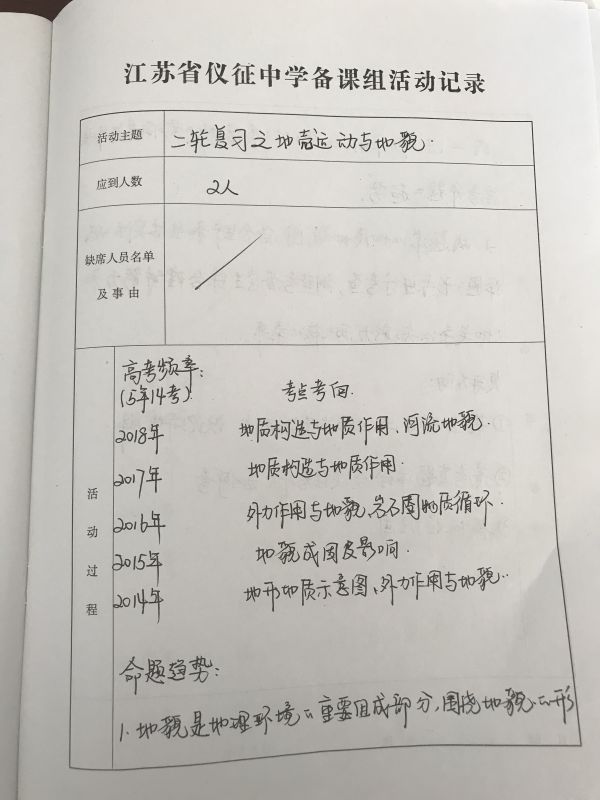 江苏省仪征中学备课组活动记录
活动主题 二轮复习之地壳运动与地貌.
应到人数 2人
缺席人员名单
及事由
活动过程
高考频率:
(5年14考) 考点考向.
2018年 地质构造与地质作用、河流地貌.
2017年 地质构造与地质作用.
2016年 外力作用与地貌、岩石圈物质循环.
2015年 地貌成因及影响.
2014年 地形地质示意图、外力作用与地貌..
命题趋势:
1. 地貌是地理环境的重要组成部分,围绕地貌的形